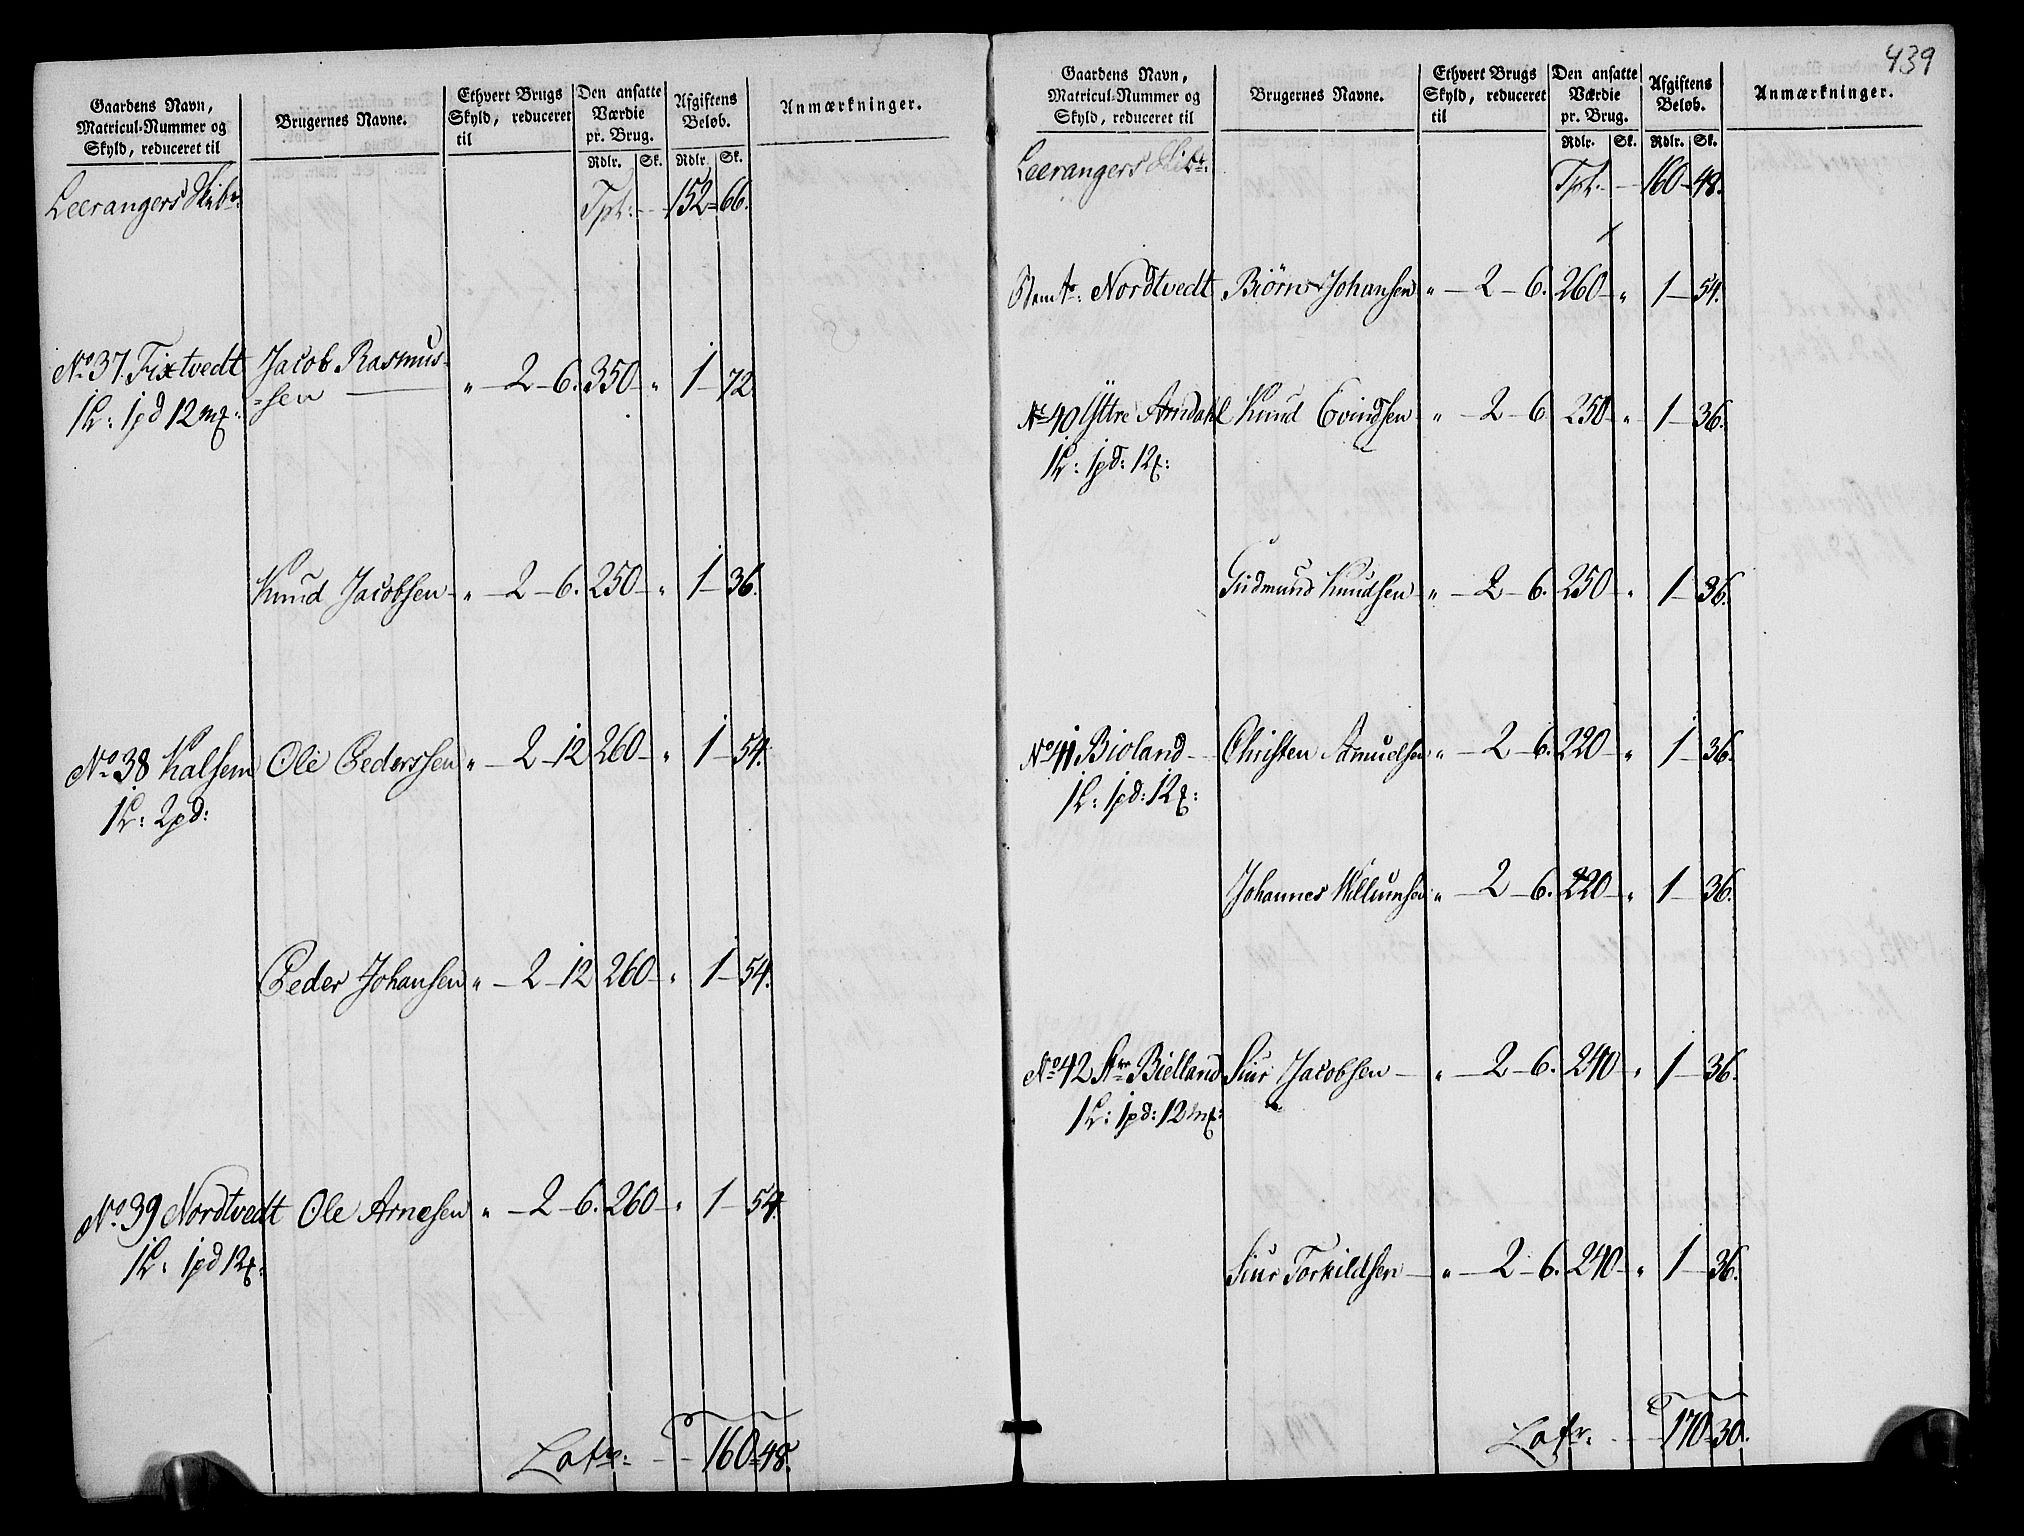 Gaardens Navn,
Matricul-Nummer og
Skyld, reduceret til
Brugernes Navne.
Ethvert Brugs
Skyld, reduceret
til
Den ansatte
Værdie
pr. Brug.
Rdlr. Sk.
Afgiftens
Beløb.
Rdlr. Sk.
Anmærkninger.
Leerangers Skibr. Tpt: 152 - 66.
No. 37. Fixtvedt Jacob Rasmus- " - 2 - 6. 350 - " 1 - 72.
-sen
1 L: 1 pd 12 mk:
Knud Jacobsen " - 2 - 6. 250 - " 1 - 36.
No. 38 Kalsem Ole Pederssen " - 2 - 12 260 - " 1 - 54.
1 L: 2 pd:
Peder Johansen " - 2 - 12 260 - " 1 - 54.
No. 39 Nordtvedt Ole Arnesen " - 2 - 6. 260 - " 1 - 54.
1 L: 1 pd 12 mk:
Latr: 160 - 48.
439
Gaardens Navn,
Matricul-Nummer og
Skyld, reduceret til
Brugernes Navne.
Ethvert Brugs
Skyld, reduceret
til
Den ansatte
Værdie
pr. Brug.
Rdlr. Sk.
Afgiftens
Beløb.
Rdlr. Sk.
Anmærkninger.
Leerangers Skibr: Tpt: 160 - 48.
Nordtvedt Biørn Johansen " - 2 - 6. 260 - " 1 - 54.
No. 40 Yttre Arndahl Knud Evindsen " - 2 - 6 250 - " 1 - 36.
1 L: 1 pd: 12 mk:
Gudmund Knudsen " - 2 - 6. 250 - " 1 - 36.
No. 41 Bioland - Christen Amudsen " - 2 - 6. 220 - " 1 - 36.
1 L: 1 pd: 12 mk:
Johannes Willumsen " - 2 - 6. 220 - " 1 - 36.
No. 42 Bielland Siur Jacobsen - " - 2 - 6. 240 - " 1 - 36.
1 L: 1 pd: 12 mk:
Siur Torkildsen - " - 2 - 6. 240 - " 1 - 36.
Latr. 170 - 30.